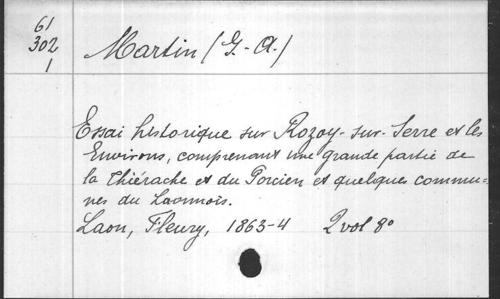 61
302
1
Martin (G.-A.)
Essai historique sur Rozoy-sur-Serre et les
Environs, comprenant une grande partie de
la Thiérache et du Porcien et quelques commu-
nes du Laonnois.
Laon, Fleury, 1863-4 2 vol 8°